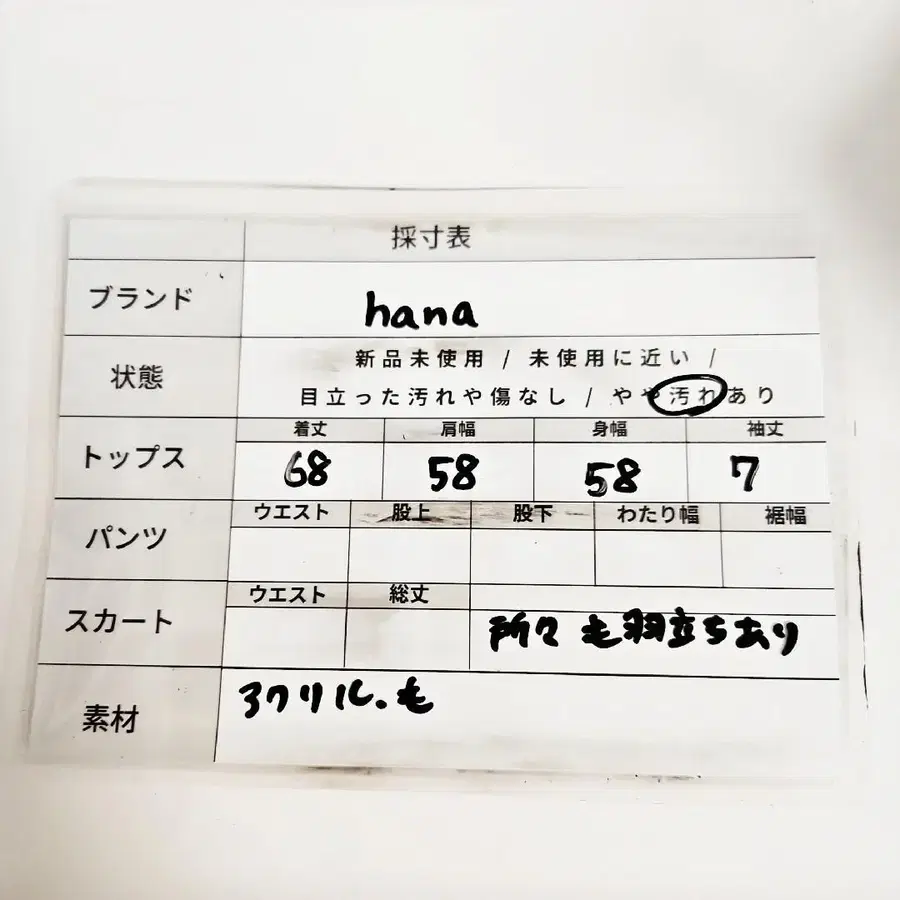 採寸表
ブランド hana
状態 新品未使用 / 未使用に近い /
目立った汚れや傷なし / やや汚れあり
着丈 肩幅 身幅 袖丈
トップス 68 58 58 7
ウエスト 股上 股下 わたり幅 裾幅
パンツ
ウエスト 総丈
スカート 所々 毛羽立ちあり
素材 アクリル.毛